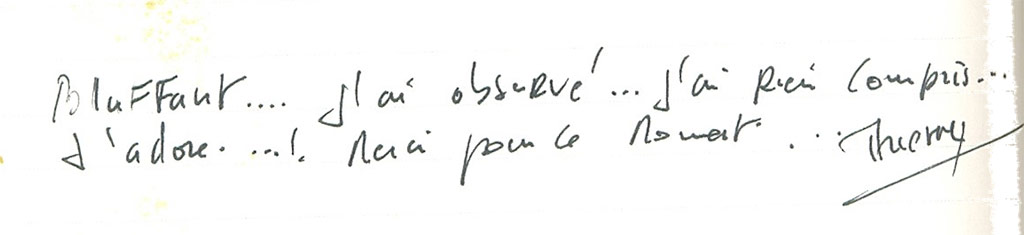 Bluffant.... J'ai observé... J'ai rien compris...
J'adore. ...!. Merci pour ce moment. ... Thierry